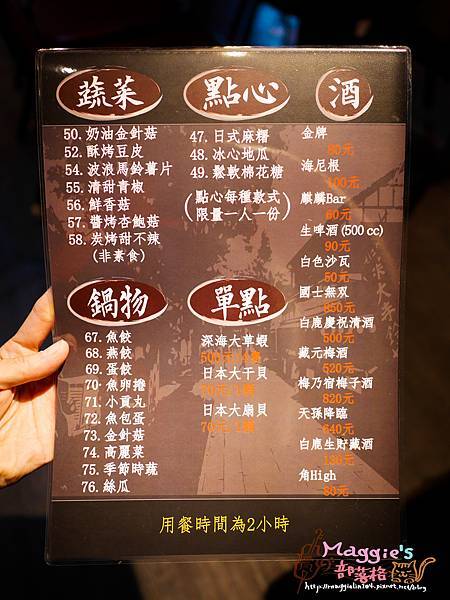 蔬菜
50. 奶油金針菇
52. 酥烤豆皮
54. 波浪馬鈴薯片
55. 清甜青椒
56. 鮮香菇
57. 醬烤杏鮑菇
58. 炭烤甜不辣
(非素食)
點心
47. 日式麻糬
48. 冰心地瓜
49. 鬆軟棉花糖
(點心每種款式
限量一人一份)
酒
金牌
80元
海尼根
100元
麒麟Bar
60元
生啤酒(500 cc)
90元
白色沙瓦
50元
國士無双
850元
白鹿慶祝清酒
500元
藏元梅酒
520元
梅乃宿梅子酒
820元
天孫降臨
640元
白鹿生貯藏酒
180元
角High
80元
鍋物
67. 魚餃
68. 燕餃
69. 蛋餃
70. 魚卵捲
71. 小貢丸
72. 魚包蛋
73. 金針菇
74. 高麗菜
75. 季節時蔬
76. 絲瓜
單點
深海大草蝦
日本大干貝
日本大扇貝
用餐時間為2小時
Maggie's
部落格